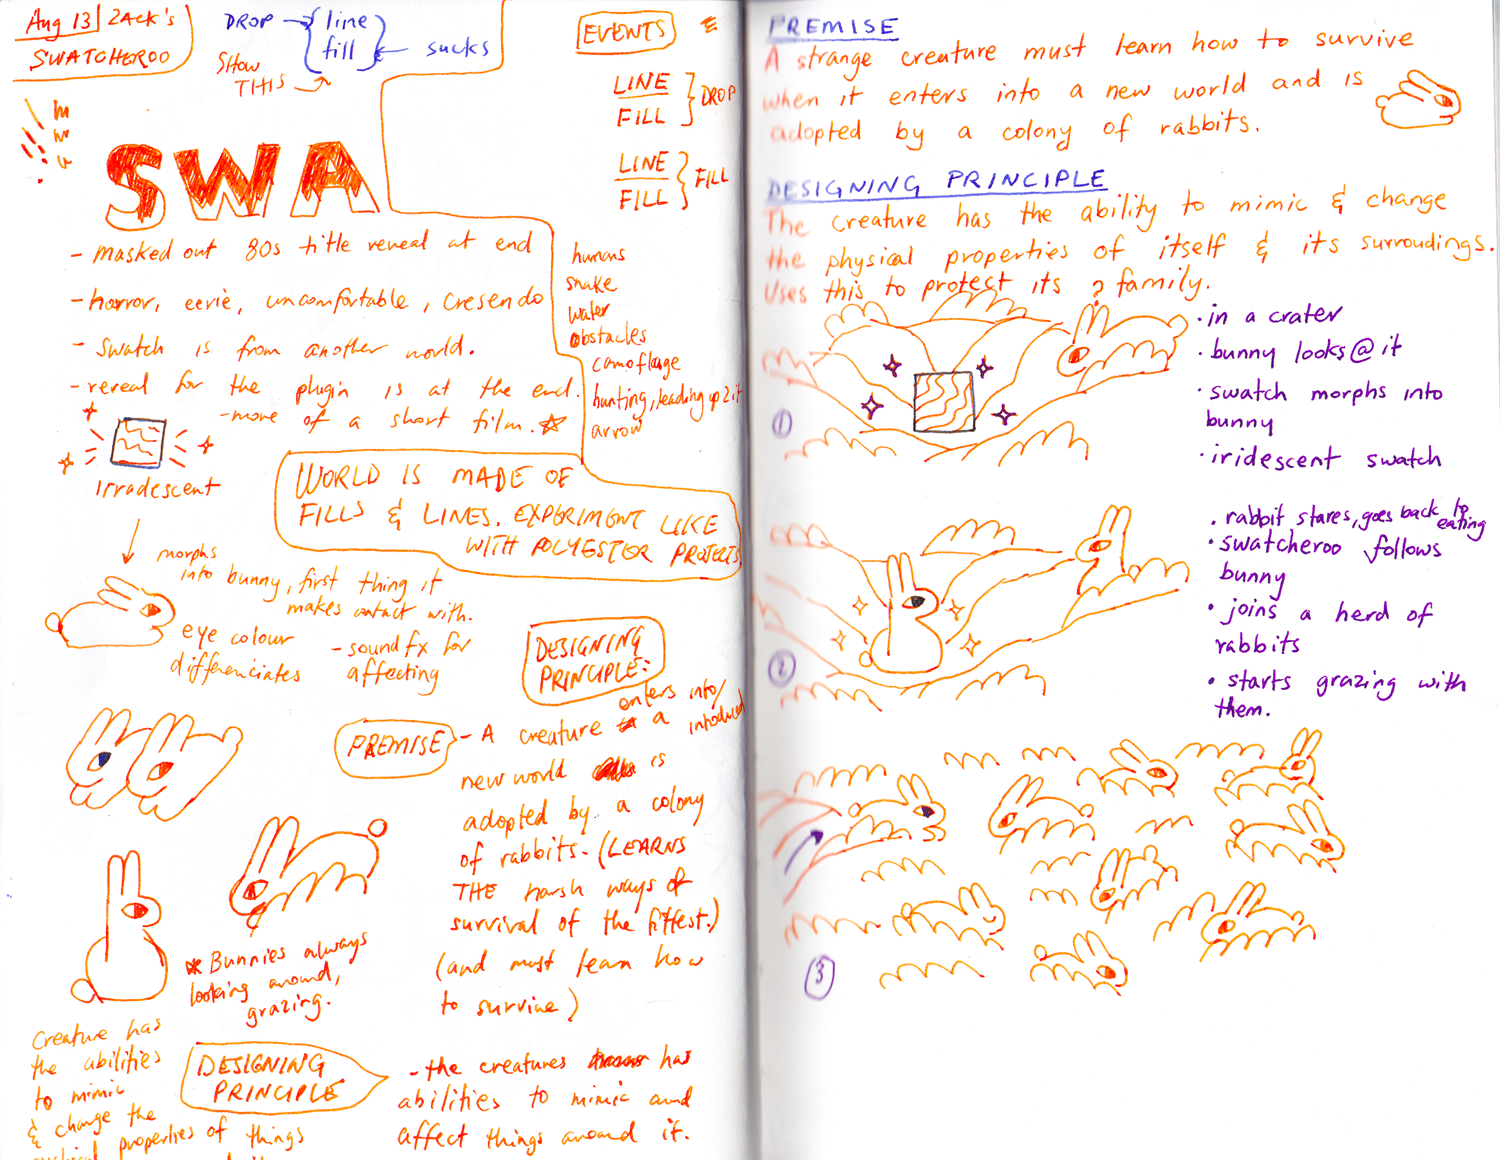 Aug 13 ZAck's
SWATCHEROO
DROP → { line
fill } ← sucks
SHOW
THIS →
EVENTS
LINE
FILL } DROP
LINE
FILL } FILL
SWA
- masked out 80s title reveal at end
- horror, eerie, uncomfortable, cresendo
- swatch is from another world.
- reveal for the plugin is at the end.
- more of a short film. ☆
humans
snake
water
obstacles
camoflage
hunting, leading up 2 it
arrow
irradescent
WORLD IS MADE OF
FILLS & LINES. EXPERIMENT LIKE
WITH POLYESTER PROJECTS
morphs
into bunny, first thing it
makes contact with.
eye colour
differenciates
- sound fx for
affecting
DESIGNING
PRINCIPLE:
PREMISE
enters into/
- A creature a introduced
new world is
adopted by a colony
of rabbits. (LEARNS
THE harsh ways of
survival of the fittest.)
(and must learn how
to survive)
* Bunnies always
looking around,
grazing.
Creature has
the abilities
to mimic
& change the
properties of things
DESIGNING
PRINCIPLE
- the creatures has
abilities to mimic and
affect things around it.
PREMISE
A strange creature must learn how to survive
when it enters into a new world and is
adopted by a colony of rabbits.
DESIGNING PRINCIPLE
The creature has the ability to mimic & change
the physical properties of itself & its surroudings.
Uses this to protect its ? family.
1
• in a crater
• bunny looks @ it
• swatch morphs into
bunny
• iridescent swatch
2
• rabbit stares, goes back to
eating
• swatcheroo follows
bunny
• joins a herd of
rabbits
• starts grazing with
them.
3